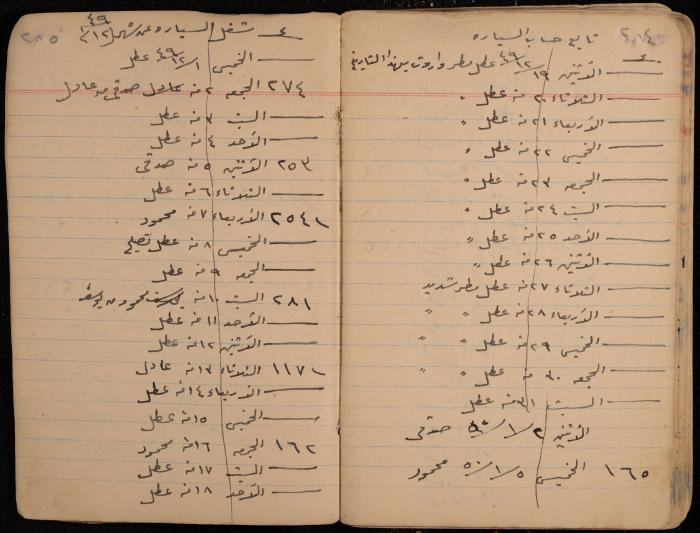 ٤ شغل السياره عن شهر ١٢/٤٩
— الخميس ١/١٢/٤٩ عطل
٢٧٤ الجمعه ٢ منه عادل صدقي عادل
— السبت ٣ منه عطل
— الأحد ٤ منه عطل
٢٥٣ الأثنين ٥ منه صدقي
— الثلاثاء ٦ منه عطل
٢٥٤١ الأربعاء ٧ منه محمود
— الخميس ٨ منه عطل تصليح
— الجمعه ٩ منه عطل
٢٨١ السبت ١٠ منه محمود يوسف
— الأحد ١١ منه عطل
— الأثنين ١٢ منه عطل
١١٧١ الثلاثاء ١٣ منه عادل
— الأربعاء ١٤ منه عطل
— الخميس ١٥ منه عطل
١٦٢ الجمعه ١٦ منه محمود
— السبت ١٧ منه عطل
— الأحد ١٨ منه عطل
تابع حساب السياره
— الأثنين ١٩/١٢/٤٩ عطل مطر التاريخ
— الثلاثاء ٢٠ منه عطل "
— الأربعاء ٢١ منه عطل "
— الخميس ٢٢ منه عطل "
— الجمعه ٢٣ منه عطل "
— السبت ٢٤ منه عطل "
— الأحد ٢٥ منه عطل "
— الأثنين ٢٦ منه عطل "
— الثلاثاء ٢٧ منه عطل مطر شديد
— الأربعاء ٢٨ منه عطل " "
— الخميس ٢٩ منه عطل " "
— الجمعه ٣٠ منه عطل " "
— السبت ٣١ منه عطل
الأثنين ٢/١/٥٠ صدقي
١٦٥ الخميس ٥/١/٥٠ محمود